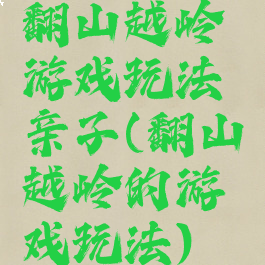 翻山越岭
游戏玩法
亲子(翻山
越岭的游
戏玩法)